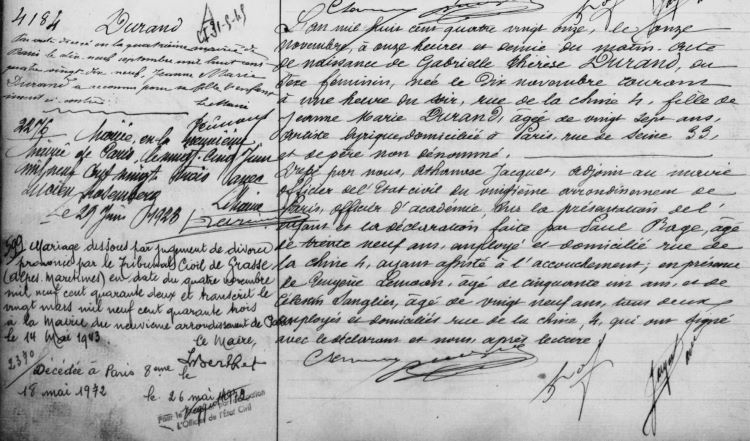 4184 Durand
Par acte dressé en la quatrième mairie de
Paris le dix neuf septembre mil huit cent
quatre vingt dix neuf, Jeanne Marie
Durand a reconnu pour sa fille l'enfant
ci contre
Le Maire
2276
Mariée en la neuvième
Mairie de Paris, le vingt cinq Juin
mil neuf cent vingt trois avec
Lucien Rosemberg
Le 29 Juin 1923
Le Maire
Mariage dissous par jugement de divorce
prononcé par le Tribunal Civil de Grasse
(Alpes Maritimes) en date du quatre novembre
mil neuf cent quarante deux et transcrit le
vingt mars mil neuf cent quarante trois
à la Mairie du neuvième arrondissement de Paris
le 14 Mai 1943
le Maire,
2390
Décédée à Paris 8ème le
18 mai 1972
le 26 mai 1972
L'Officier de l'Etat Civil
L'an mil huit cent quatre vingt onze, le onze
novembre, à onze heures et demie du matin. Acte
de naissance de Gabrielle Thérèse Durand, du
sexe féminin, née le dix novembre courant
à une heure du soir, rue de la Chine 4, fille de
Jeanne Marie Durand, agée de vingt sept ans,
artiste lyrique, domiciliée à Paris, rue de Seine 33,
et de père non dénommé.
Dressé par nous, Athanase Jacques, adjoint au maire
officier de l'Etat civil du vingtième arrondissement de
Paris, officier d'académie, sur la présentation de l'
enfant et la déclaration faite par Paul Bage, âgé
de trente neuf ans, employé et domicilié rue de
la Chine 4, ayant assisté à l'accouchement; en présence
de Eugène Lemoon, âgé de cinquante un ans, et de
Célestin Sanglier, âgé de vingt neuf ans, tous deux
employés et domiciliés rue de la Chine, 4, qui ont signé
avec le déclarant et nous après lecture.